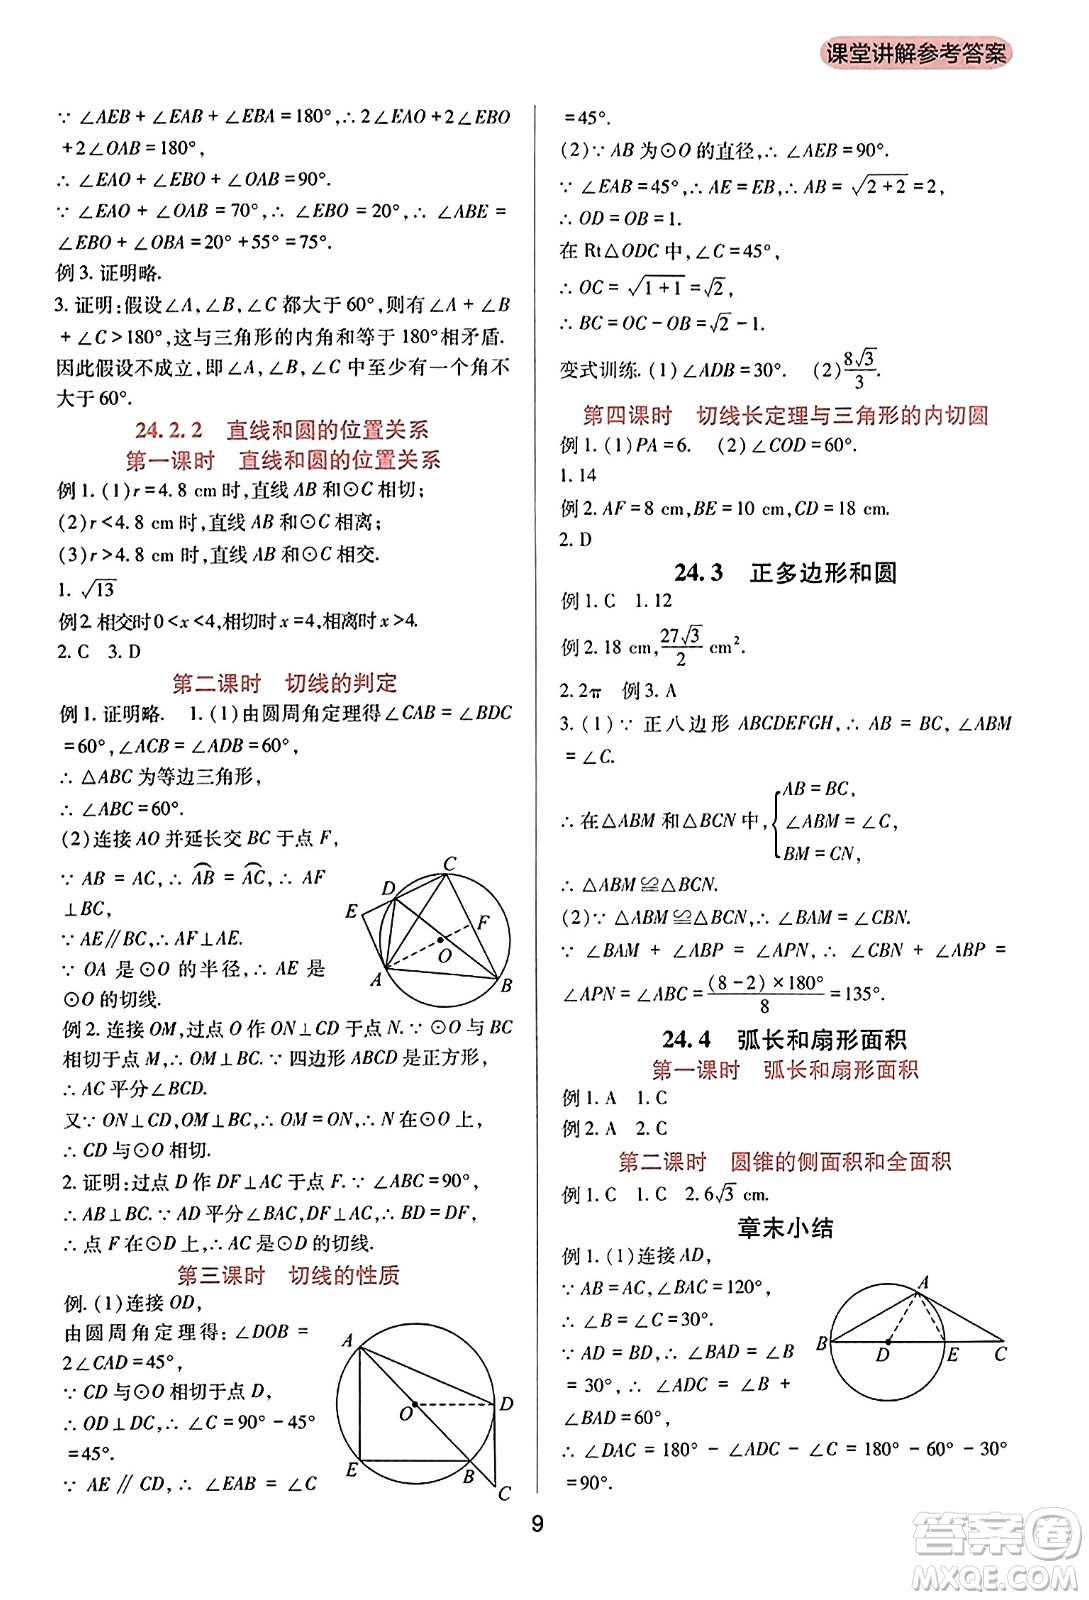 课堂讲解参考答案
∵ ∠AEB + ∠EAB + ∠EBA = 180°,∴ 2∠EAO + 2∠EBO
+2∠OAB = 180°,
∴ ∠EAO + ∠EBO + ∠OAB = 90°.
∵ ∠EAO + ∠OAB = 70°,∴ ∠EBO = 20°,∴ ∠ABE =
∠EBO + ∠OBA = 20° + 55° = 75°.
例 3. 证明略.
3. 证明:假设∠A,∠B,∠C 都大于 60°,则有∠A + ∠B
+ ∠C > 180°,这与三角形的内角和等于 180°相矛盾.
因此假设不成立,即∠A,∠B,∠C 中至少有一个角不
大于 60°.
24.2.2 直线和圆的位置关系
第一课时 直线和圆的位置关系
例 1. (1) r = 4.8 cm 时,直线 AB 和⊙C 相切;
(2) r < 4.8 cm 时,直线 AB 和⊙C 相离;
(3) r > 4.8 cm 时,直线 AB 和⊙C 相交.
1. √13
例 2. 相交时 0 < x < 4,相切时 x = 4,相离时 x > 4.
2. C 3. D
第二课时 切线的判定
例 1. 证明略. 1. (1)由圆周角定理得∠CAB = ∠BDC
= 60°,∠ACB = ∠ADB = 60°,
∴ △ABC 为等边三角形,
∴ ∠ABC = 60°.
(2)连接 AO 并延长交 BC 于点 F,
∵ AB = AC,∴ A͡B = A͡C,∴ AF
⊥BC,
∵ AE∥BC,∴ AF⊥AE.
∵ OA 是⊙O 的半径,∴ AE 是
⊙O 的切线.
C
D
E
F
O
A
B
例 2. 连接 OM,过点 O 作 ON⊥CD 于点 N. ∵ ⊙O 与 BC
相切于点 M,∴ OM⊥BC. ∵ 四边形 ABCD 是正方形,
∴ AC 平分∠BCD.
又∵ ON⊥CD,OM⊥BC,∴ OM = ON,∴ N 在⊙O 上,
∴ CD 与⊙O 相切.
2. 证明:过点 D 作 DF⊥AC 于点 F,∵ ∠ABC = 90°,
∴ AB⊥BC. ∵ AD 平分∠BAC,DF⊥AC,∴ BD = DF,
∴ 点 F 在⊙D 上,∴ AC 是⊙D 的切线.
第三课时 切线的性质
例. (1)连接 OD,
由圆周角定理得: ∠DOB =
2∠CAD = 45°,
∵ CD 与⊙O 相切于点 D,
∴ OD⊥DC,∴ ∠C = 90° - 45°
= 45°.
∵ AE ∥ CD,∴ ∠EAB = ∠C
A
O
D
E
B
C
= 45°.
(2)∵ AB 为⊙O 的直径,∴ ∠AEB = 90°.
∵ ∠EAB = 45°,∴ AE = EB,∴ AB = √(2+2) = 2,
∴ OD = OB = 1.
在 Rt△ODC 中,∠C = 45°,
∴ OC = √(1+1) = √2,
∴ BC = OC - OB = √2 - 1.
变式训练. (1)∠ADB = 30°. (2) 8√3/3.
第四课时 切线长定理与三角形的内切圆
例 1. (1) PA = 6. (2)∠COD = 60°.
1. 14
例 2. AF = 8 cm,BE = 10 cm,CD = 18 cm.
2. D
24.3 正多边形和圆
例 1. C 1. 12
例 2. 18 cm, 27√3/2 cm².
2. 2π 例 3. A
3. (1)∵ 正八边形 ABCDEFGH,∴ AB = BC,∠ABM
= ∠C.
∴ 在△ABM 和△BCN 中, { AB = BC,
∠ABM = ∠C,
BM = CN,
∴ △ABM≌△BCN.
(2)∵ △ABM≌△BCN,∴ ∠BAM = ∠CBN.
∵ ∠BAM + ∠ABP = ∠APN,∴ ∠CBN + ∠ABP =
∠APN = ∠ABC = (8-2)×180°/8 = 135°.
24.4 弧长和扇形面积
第一课时 弧长和扇形面积
例 1. A 1. C
例 2. A 2. C
第二课时 圆锥的侧面积和全面积
例 1. C 1. C 2. 6√3 cm.
章末小结
例 1. (1)连接 AD,
∵ AB = AC,∠BAC = 120°,
∴ ∠B = ∠C = 30°.
∵ AD = BD,∴ ∠BAD = ∠B
= 30°,∴ ∠ADC = ∠B +
∠BAD = 60°,
∴ ∠DAC = 180° - ∠ADC - ∠C = 180° - 60° - 30°
= 90°.
A
B
D
E
C
9
答案圈
MXQE.COM